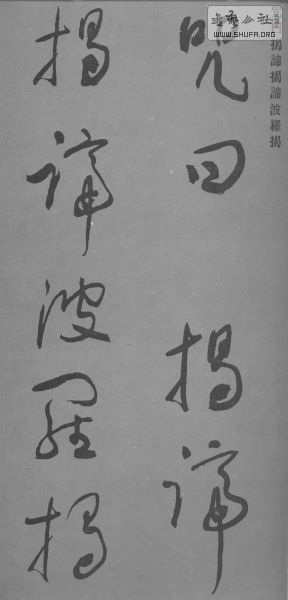 書藝公社
WWW.SHUFA.ORG
揭諦揭諦波羅揭
咒曰 揭諦
揭諦波羅揭